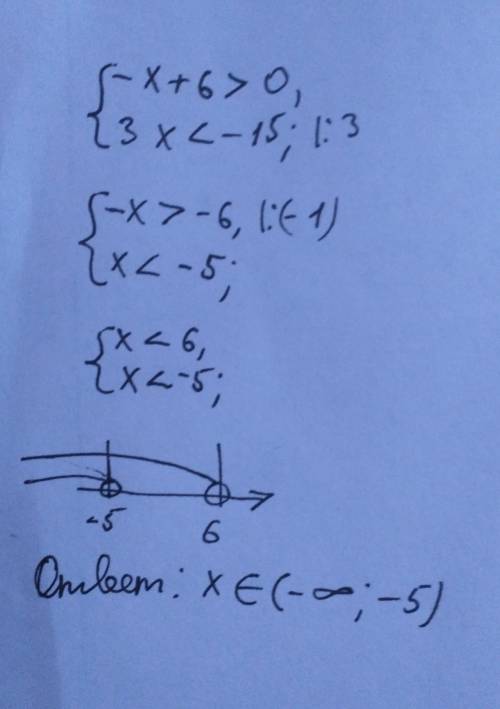 {-x+6>0,
{3 x<-15; |:3
{-x>-6, |:(-1)
{x<-5;
{x<6,
{x<-5;
-5 6
Ответ: x∈(-∞;-5)